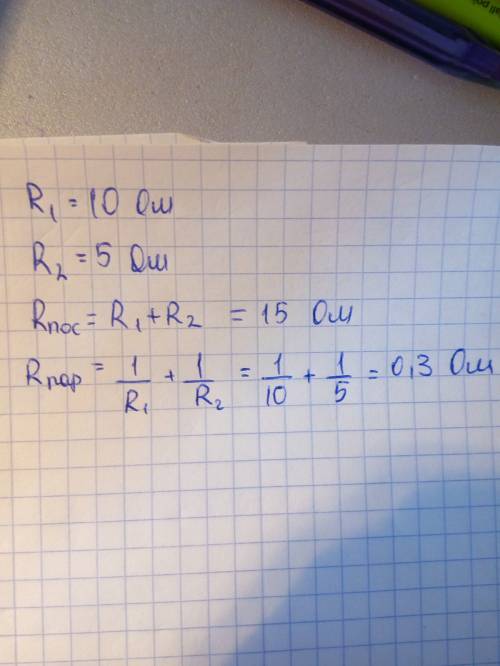 R₁ = 10 Ом
R₂ = 5 Ом
Rпос = R₁ + R₂ = 15 Ом
Rпар = 1/R₁ + 1/R₂ = 1/10 + 1/5 = 0,3 Ом